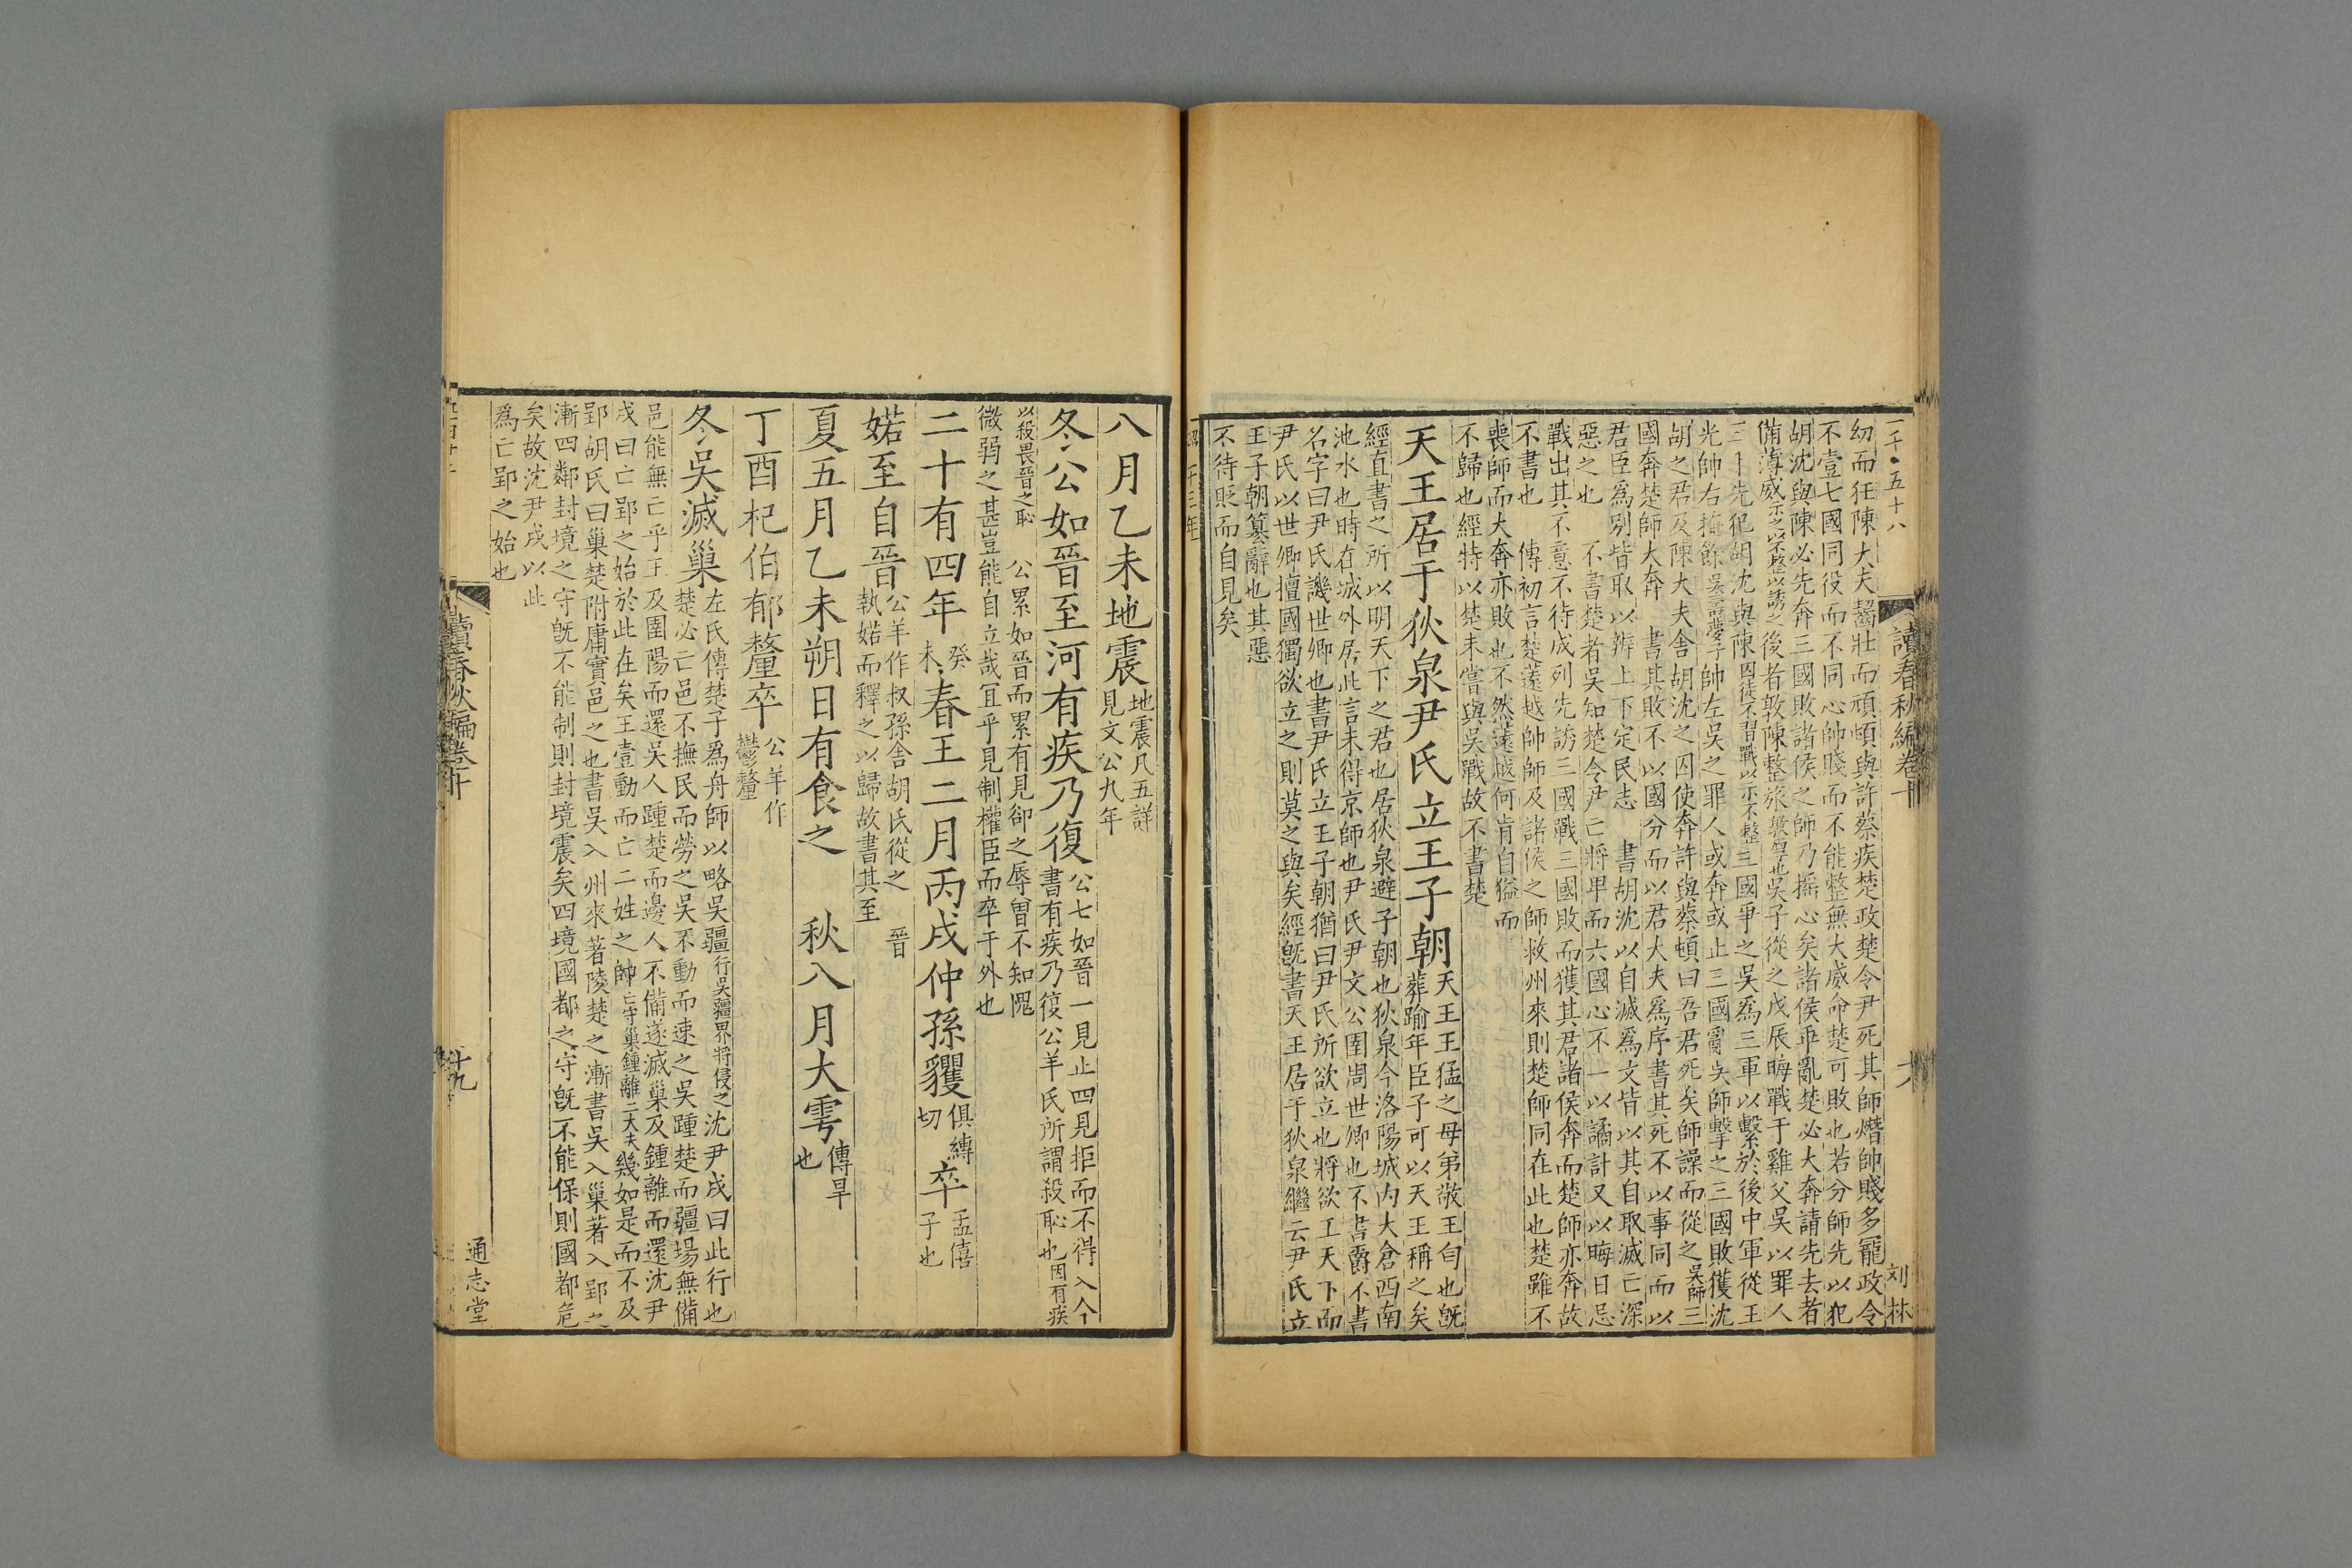 一千●五十八
讀春秋編卷十
刘林
幼而狂陳大夫齧壯而頑頓與許蔡疾楚政楚令尹死其師熸帥賤多寵政令
不壹七國同役而不同心帥賤而不能整無大威命楚可敗也若分師先以犯
胡沈與陳必先奔三國敗諸侯之師乃揺心矣諸侯乖亂楚必大奔請先去者
備薄威示之以不整以誘之後者敦陳整旅敦厚也吳子從之戊辰晦戰于雞父吳以罪人
三千先犯胡沈與陳囚徒不習戰以示不整三國爭之吳爲三軍以繫於後中軍從王
光帥右掩餘吳壽夢子帥左吳之罪人或奔或止三國亂吳師擊之三國敗獲沈
胡之君及陳大夫舍胡沈之囚使奔許與蔡頓曰吾君死矣師譟而從之吳師三
國奔楚師大奔　書其敗不以國分而以君大夫爲序書其死不以事同而以
君臣爲別皆取以辨上下定民志　書胡沈以自滅爲文皆以其自取滅亡深
惡之也　不書楚者吳知楚令尹亡將卑而六國心不一以譎計又以晦日忌
戰出其不意不待成列先誘三國戰三國敗而獲其君諸侯奔而楚師亦奔故
不書也　傳初言楚薳越帥師及諸侯之師救州來則楚師同在此也楚雖不
喪師而大奔亦敗也不然薳越何肯自縊而
不歸也經特以楚未嘗與吳戰故不書楚
天王居于狄泉尹氏立王子朝天王王猛之母弟敬王匄也旣
葬踰年臣子可以天王稱之矣
經直書之所以明天下之君也居狄泉避子朝也狄泉今洛陽城内大倉西南
池水也時在城外居此言未得京師也尹氏尹文公圉周世卿也不書爵不書
名字曰尹氏譏世卿也書尹氏立王子朝猶曰尹氏所欲立也將欲工天下而
尹氏以世卿擅國獨欲立之則莫之與矣經旣書天王居于狄泉繼云尹氏立
王子朝篡辭也其惡
不待貶而自見矣
八月乙未地震地震凡五詳
見文公九年
冬公如晉至河有疾乃復公七如晉一見止四見拒而不得入今
書有疾乃復公羊氏所謂殺恥也因有疾
以殺畏晉之恥　公累如晉而累有見卻之辱曽不知愧
微弱之甚豈能自立哉宜乎見制權臣而卒于外也
二十有四年癸未春王二月丙戌仲孫貜俱縛切卒孟僖子也
婼至自晉公羊作叔孫舍胡氏從之　晉
執婼而釋之以歸故書其至
夏五月乙未朔日有食之　秋八月大雩傳旱也
丁酉杞伯郁釐卒公羊作鬱釐
冬吳滅巢左氏傳楚子爲舟師以略吳疆行吳疆界將侵之沈尹戌曰此行也
楚必亡邑不撫民而勞之吳不動而速之吳踵楚而疆場無備
邑能無亡乎王及圉陽而還吳人踵楚而邊人不備遂滅巢及鍾離而還沈尹
戌曰亡郢之始於此在矣王壹動而亡二姓之帥亡守巢鍾離二大夫幾如是而不及
郢胡氏曰巢楚附庸實邑之也書吳入州來著陵楚之漸書吳入巢著入郢之
漸四鄰封境之守旣不能制則封境震矣四境國都之守旣不能保則國都危
矣故沈尹戌以此
爲亡郢之始也
讀春秋編卷十
十九
通志堂